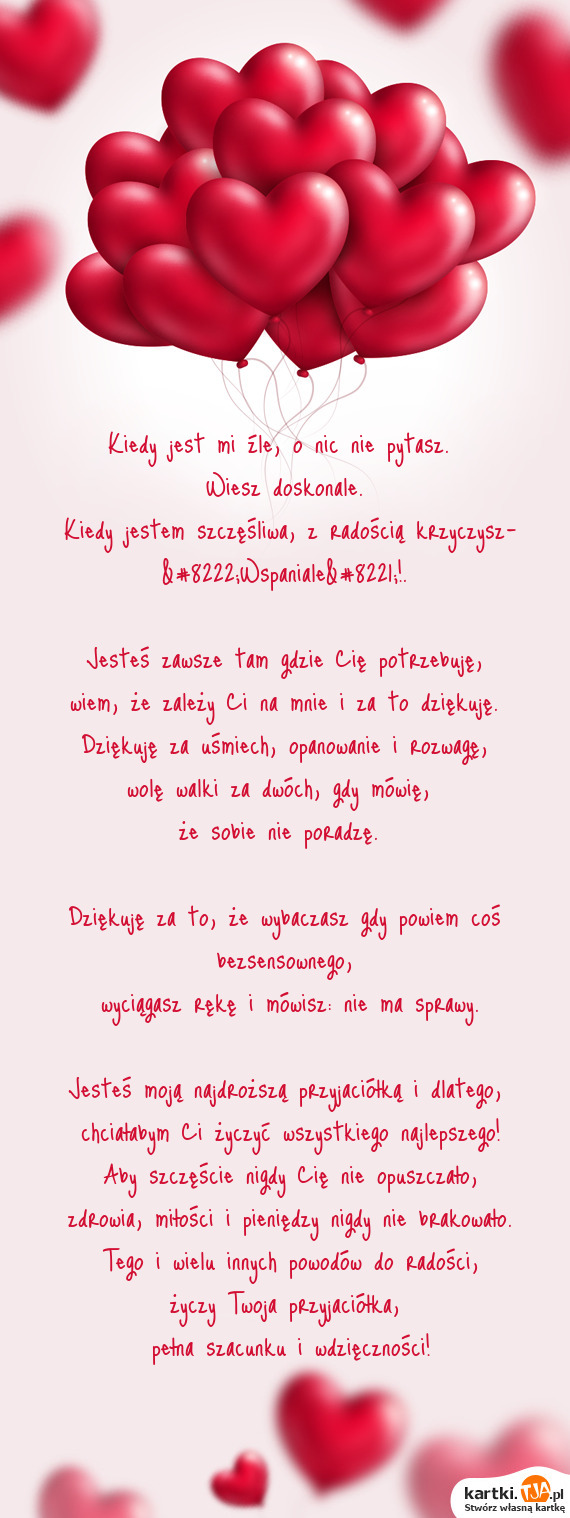 Kiedy jest mi źle, o nic nie pytasz.
Wiesz doskonale.
Kiedy jestem szczęśliwa, z radością krzyczysz-
&#8222;Wspaniale&#8221;!.
Jesteś zawsze tam gdzie Cię potrzebuję,
wiem, że zależy Ci na mnie i za to dziękuję.
Dziękuję za uśmiech, opanowanie i rozwagę,
wolę walki za dwóch, gdy mówię,
że sobie nie poradzę.
Dziękuję za to, że wybaczasz gdy powiem coś
bezsensownego,
wyciągasz rękę i mówisz: nie ma sprawy.
Jesteś moją najdroższą przyjaciółką i dlatego,
chciałabym Ci życzyć wszystkiego najlepszego!
Aby szczęście nigdy Cię nie opuszczało,
zdrowia, miłości i pieniędzy nigdy nie brakowało.
Tego i wielu innych powodów do radości,
życzy Twoja przyjaciółka,
pełna szacunku i wdzięczności!
kartki.TJA.pl
Stwórz własną kartkę